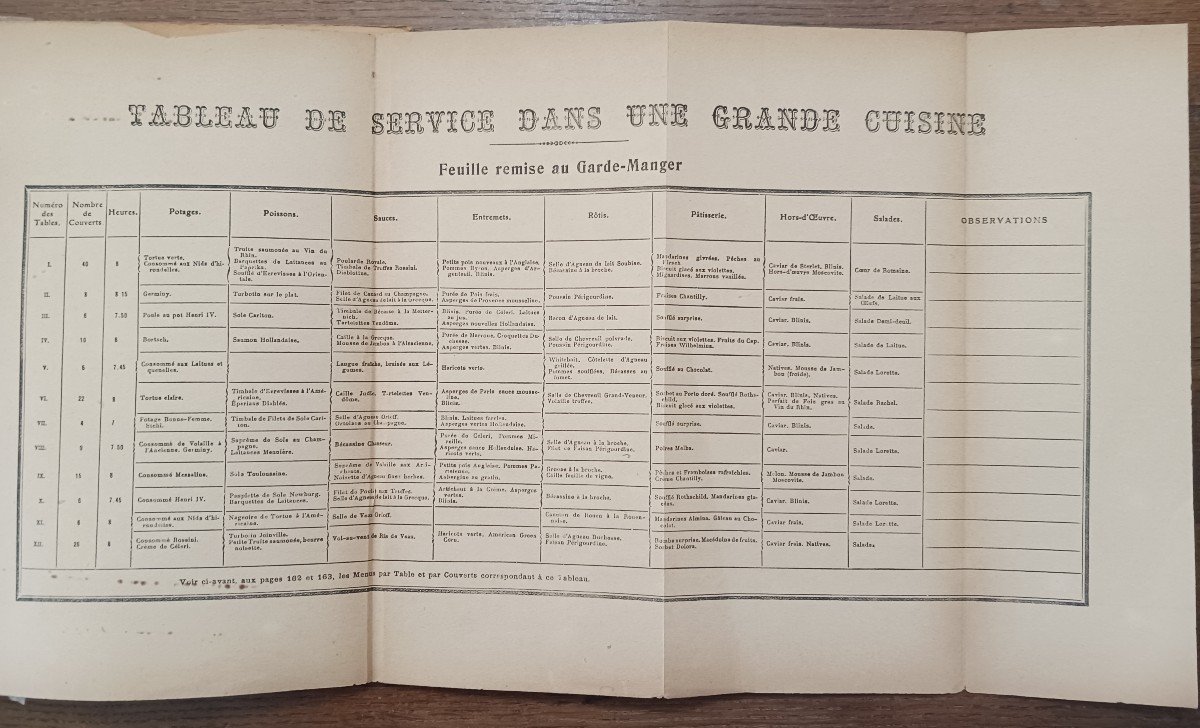 TABLEAU DE SERVICE DANS UNE GRANDE CUISINE
Feuille remise au Garde-Manger
Numéro des Tables.
Nombre de Couverts
Heures.
Potages.
Poissons.
Sauces.
Entremets.
Rôtis.
Pâtisserie.
Hors-d'Œuvre.
Salades.
OBSERVATIONS
I.
40
8
Tortue verte.
Consommé aux Nids d'hi-
rondelles.
Truite saumonée au Vin du
Rhin.
Barquettes de Laitances au
Paprika.
Soufflé d'Ecrevisses à l'Orien-
tale.
Poularde Royale.
Timbale de Truffes Rossini.
Diablotins.
Petits pois nouveaux à l'Anglaise.
Pommes Byron. Asperges d'Ar-
genteuil. Blinis.
Selle d'Agneau de lait Soubise.
Bécassine à la broche.
Mandarines givrées. Pêches au
Kirsch.
Biscuit glacé aux violettes.
Mignardises. Marrons vanillés.
Caviar de Sterlet. Blinis.
Hors-d'œuvre Moscovite.
Cœur de Romaine.
II.
8
8 15
Germiny.
Turbotin sur le plat.
Filet de Canard au Champagne.
Selle d'Agneau de lait à la Grecque.
Purée de Pois frais.
Asperges de Provence mousseline.
Poussin Périgourdine.
Fraises Chantilly.
Caviar frais.
Salade de Laitue aux
Œufs.
III.
6
7.50
Poule au pot Henri IV.
Sole Carlton.
Timbale de Bécasse à la Metter-
nich.
Tartelettes Vendôme.
Blinis. Purée de Céleri. Laitues
au jus.
Asperges nouvelles Hollandaise.
Baron d'Agneau de lait.
Soufflé surprise.
Caviar. Blinis.
Salade Demi-deuil.
IV.
10
8
Bortsch.
Saumon Hollandaise.
Caille à la Grecque.
Mousse de Jambon à l'Alsacienne.
Purée de Marrons. Croquettes Du-
chesse.
Asperges vertes. Blinis.
Selle de Chevreuil poivrade.
Poussin Périgourdine.
Biscuit aux violettes. Fruits du Cap.
Fraises Wilhelmine.
Caviar. Blinis.
Salade de Laitue.
V.
6
7.45
Consommé aux Laitues et
quenelles.
Langue fraîche, braisée aux Lé-
gumes.
Haricots verts.
Whitebait. Côtelette d'Agneau
grillée.
Pommes soufflées. Bécasses au
fumet.
Soufflé au Chocolat.
Natives. Mousse de Jam-
bon (froide).
Salade Lorette.
VI.
22
8
Tortue claire.
Timbale d'Ecrevisses à l'Amé-
ricaine.
Éperlans Diablés.
Caille Judic. Tartelettes Ven-
dôme.
Asperges de Paris sauce mousse-
line.
Blinis.
Selle de Chevreuil Grand-Veneur.
Volaille truffée.
Sorbet au Porto doré. Soufflé Roths-
child.
Biscuit glacé aux violettes.
Caviar. Blinis. Natives.
Parfait de Foie gras au
Vin du Rhin.
Salade Rachel.
VII.
4
7
Potage Bonne-Femme.
Timbale de Filets de Sole Carl-
ton.
Selle d'Agneau Orloff.
Ortolans au Champagne.
Blinis. Laitues farcies.
Asperges vertes Hollandaise.
Soufflé surprise.
Caviar. Blinis.
Salade.
VIII.
9
7 50
Consommé de Volaille à
l'Ancienne. Germiny.
Suprême de Sole au Cham-
pagne.
Laitances Meunière.
Bécassine Chasseur.
Purée de Céleri. Pommes Mi-
reille.
Asperges sauce Hollandaise. Ha-
ricots verts.
Selle d'Agneau à la broche.
Filet de Faisan Périgourdine.
Poires Melba.
Caviar.
Salade Lorette.
IX.
15
8
Consommé Messaline.
Sole Toulousaine.
Suprême de Volaille aux Arti-
chauts.
Noisette d'Agneau fines herbes.
Petits pois Anglaise. Pommes Pa-
risienne.
Aubergine au gratin.
Grouse à la broche.
Caille feuille de vigne.
Pêches et Framboises rafraîchies.
Crème Chantilly.
Melon. Mousse de Jambon
Moscovite.
Salade.
X.
6
7 45
Consommé Henri IV.
Paupiette de Sole Newburg.
Barquettes de Laitances.
Filet de Poulet aux Truffes.
Selle d'Agneau de lait à la Grecque.
Artichaut à la Crème. Asperges
vertes.
Blinis.
Bécassine à la broche.
Soufflé Rothschild. Mandarines gla-
cées.
Caviar. Blinis.
Salade Lorette.
XI.
6
8
Consommé aux Nids d'hi-
rondelles.
Nageoire de Tortue à l'Amé-
ricaine.
Selle de Veau Orloff.
Caneton de Rouen à la Rouen-
naise.
Mandarines Almina. Gâteau au Cho-
colat.
Caviar frais.
Salade Lorette.
XII.
26
8
Consommé Rossini.
Crème de Céleri.
Turbotin Joinville.
Petite Truite saumonée, beurre
noisette.
Vol-au-vent de Ris de Veau.
Haricots verts. American Green
Corn.
Selle d'Agneau Duchesse.
Faisan Périgourdine.
Bombe surprise. Macédoine de fruits.
Sorbet Dolora.
Caviar frais. Natives.
Salades
Voir ci-avant, aux pages 162 et 163, les Menus par Table et par Couverts correspondant à ce Tableau.